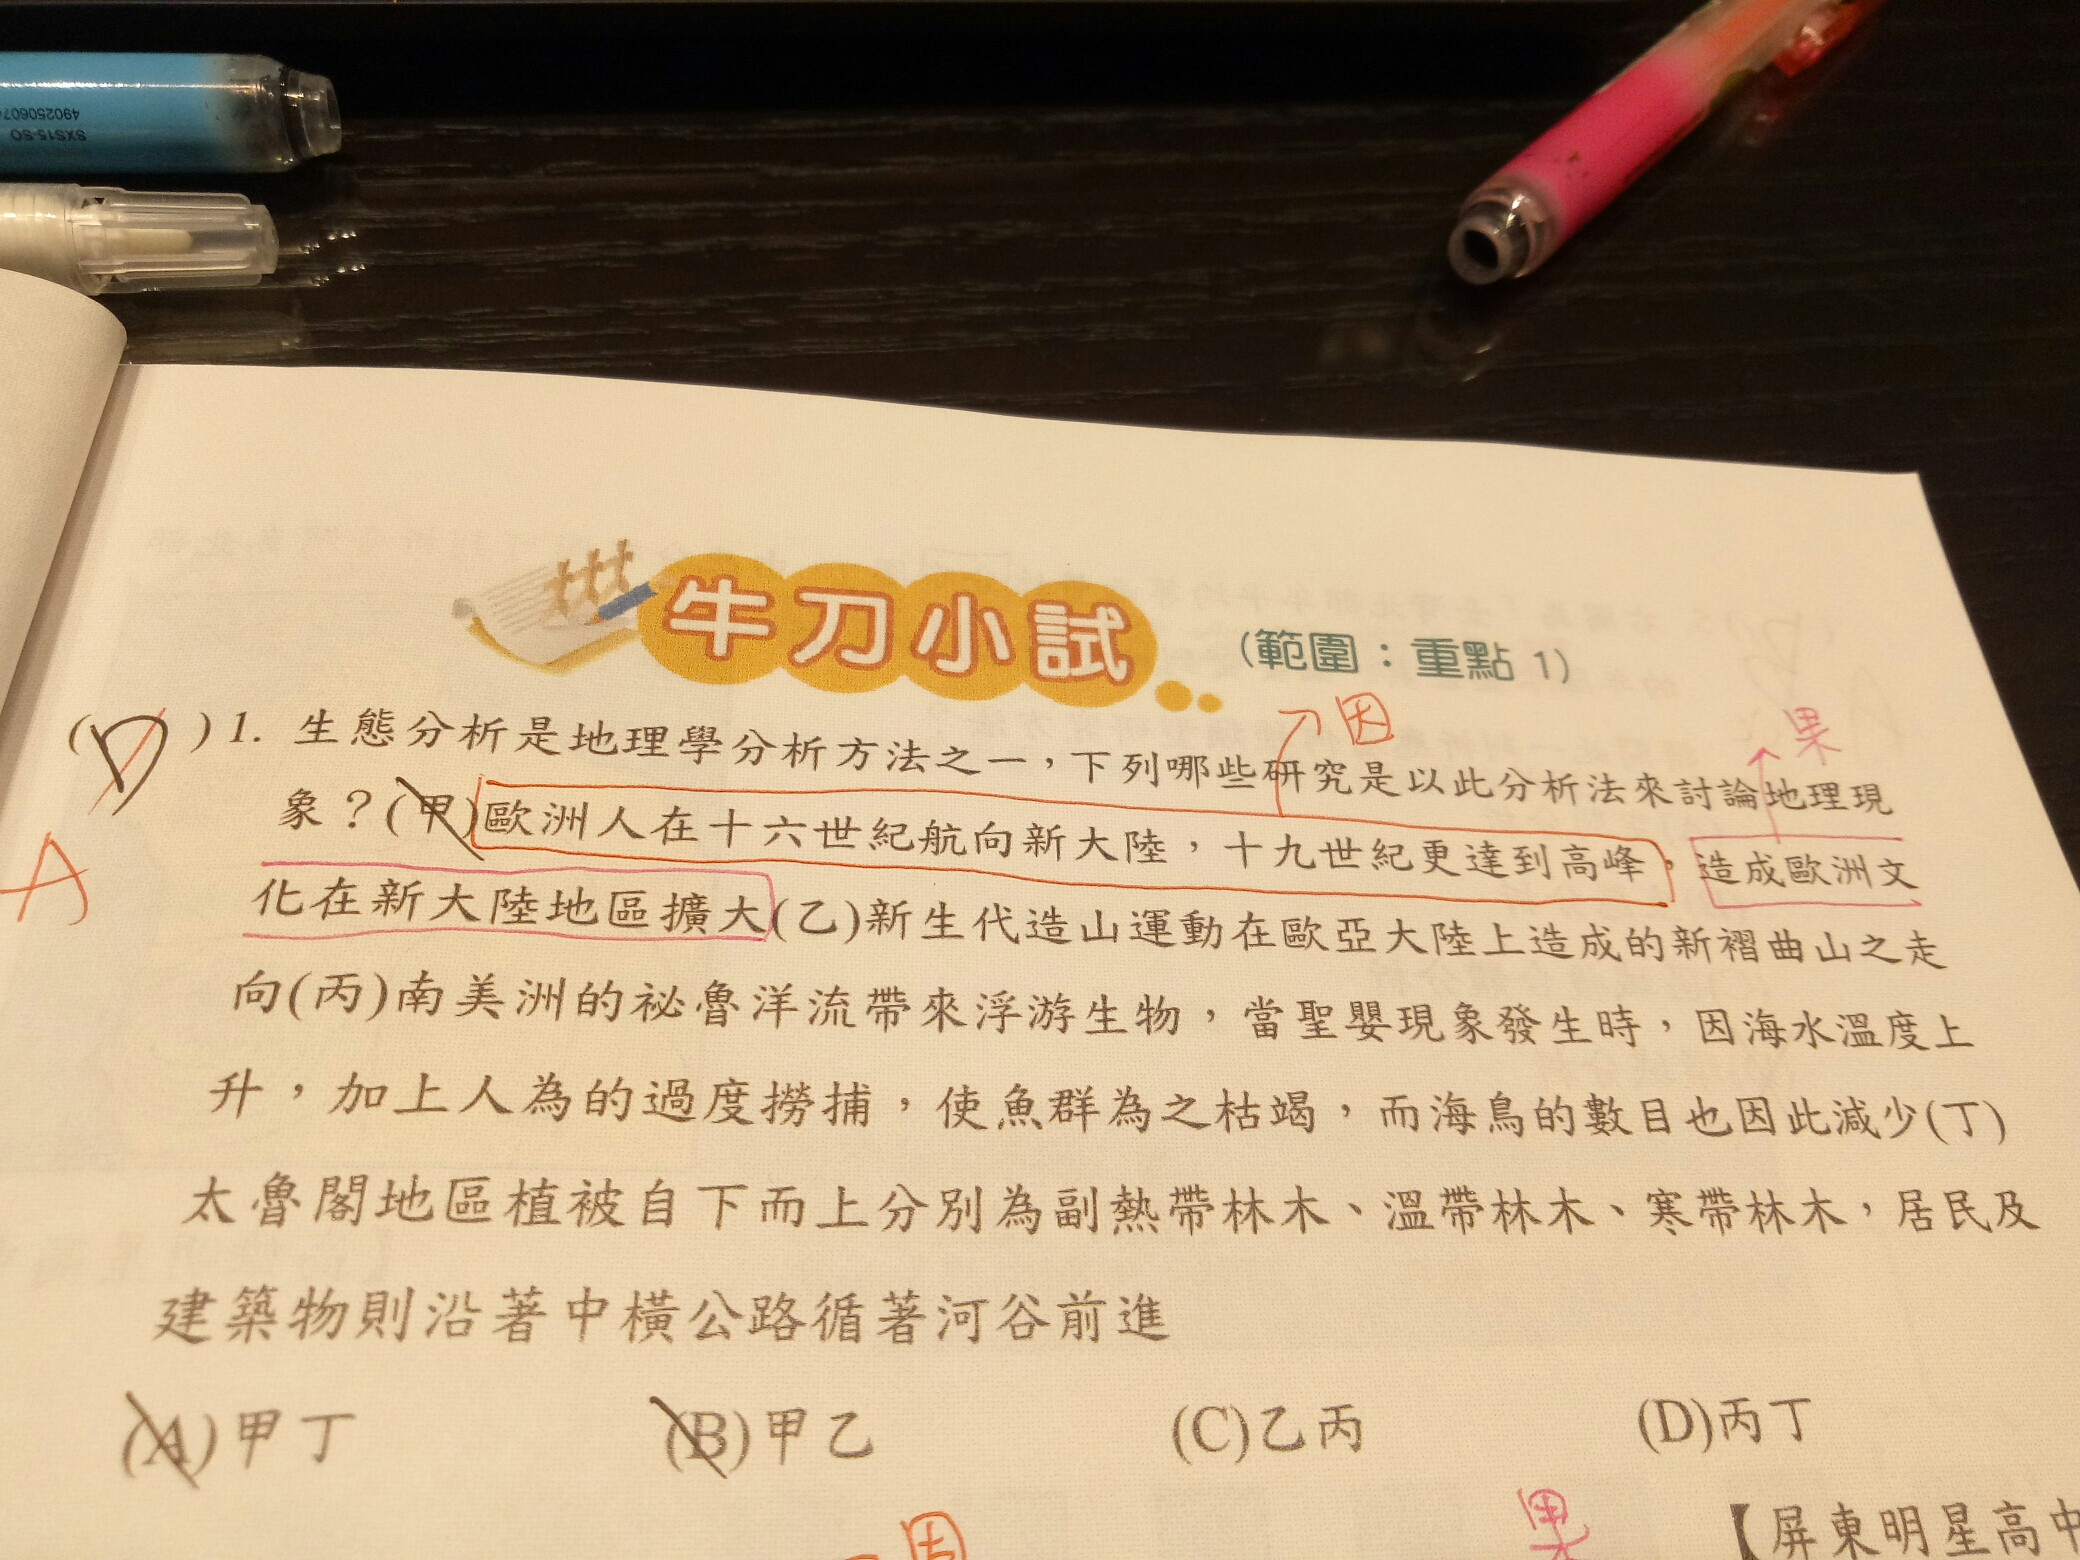 4902506074
SXS15-SO
牛刀小試
(範圍：重點 1)
因
果
(D)1. 生態分析是地理學分析方法之一，下列哪些研究是以此分析法來討論地理現
象？(甲)歐洲人在十六世紀航向新大陸，十九世紀更達到高峰，造成歐洲文
A
化在新大陸地區擴大(乙)新生代造山運動在歐亞大陸上造成的新褶曲山之走
向(丙)南美洲的祕魯洋流帶來浮游生物，當聖嬰現象發生時，因海水溫度上
升，加上人為的過度撈捕，使魚群為之枯竭，而海鳥的數目也因此減少(丁)
太魯閣地區植被自下而上分別為副熱帶林木、溫帶林木、寒帶林木，居民及
建築物則沿著中橫公路循著河谷前進
(A)甲丁 (B)甲乙 (C)乙丙 (D)丙丁
因
果
【屏東明星高中